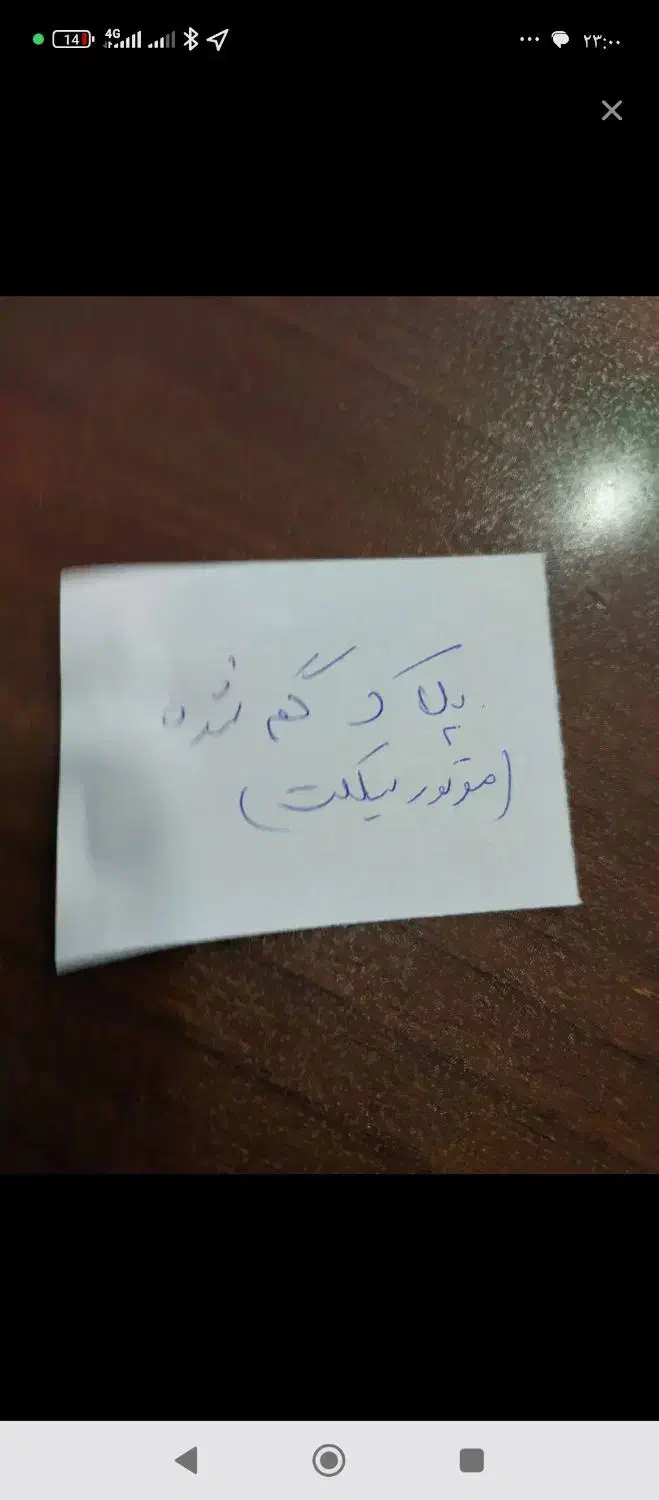 14 4G ... ۲۳:۰۰
پلاک گم شده
(موتور سیکلت)